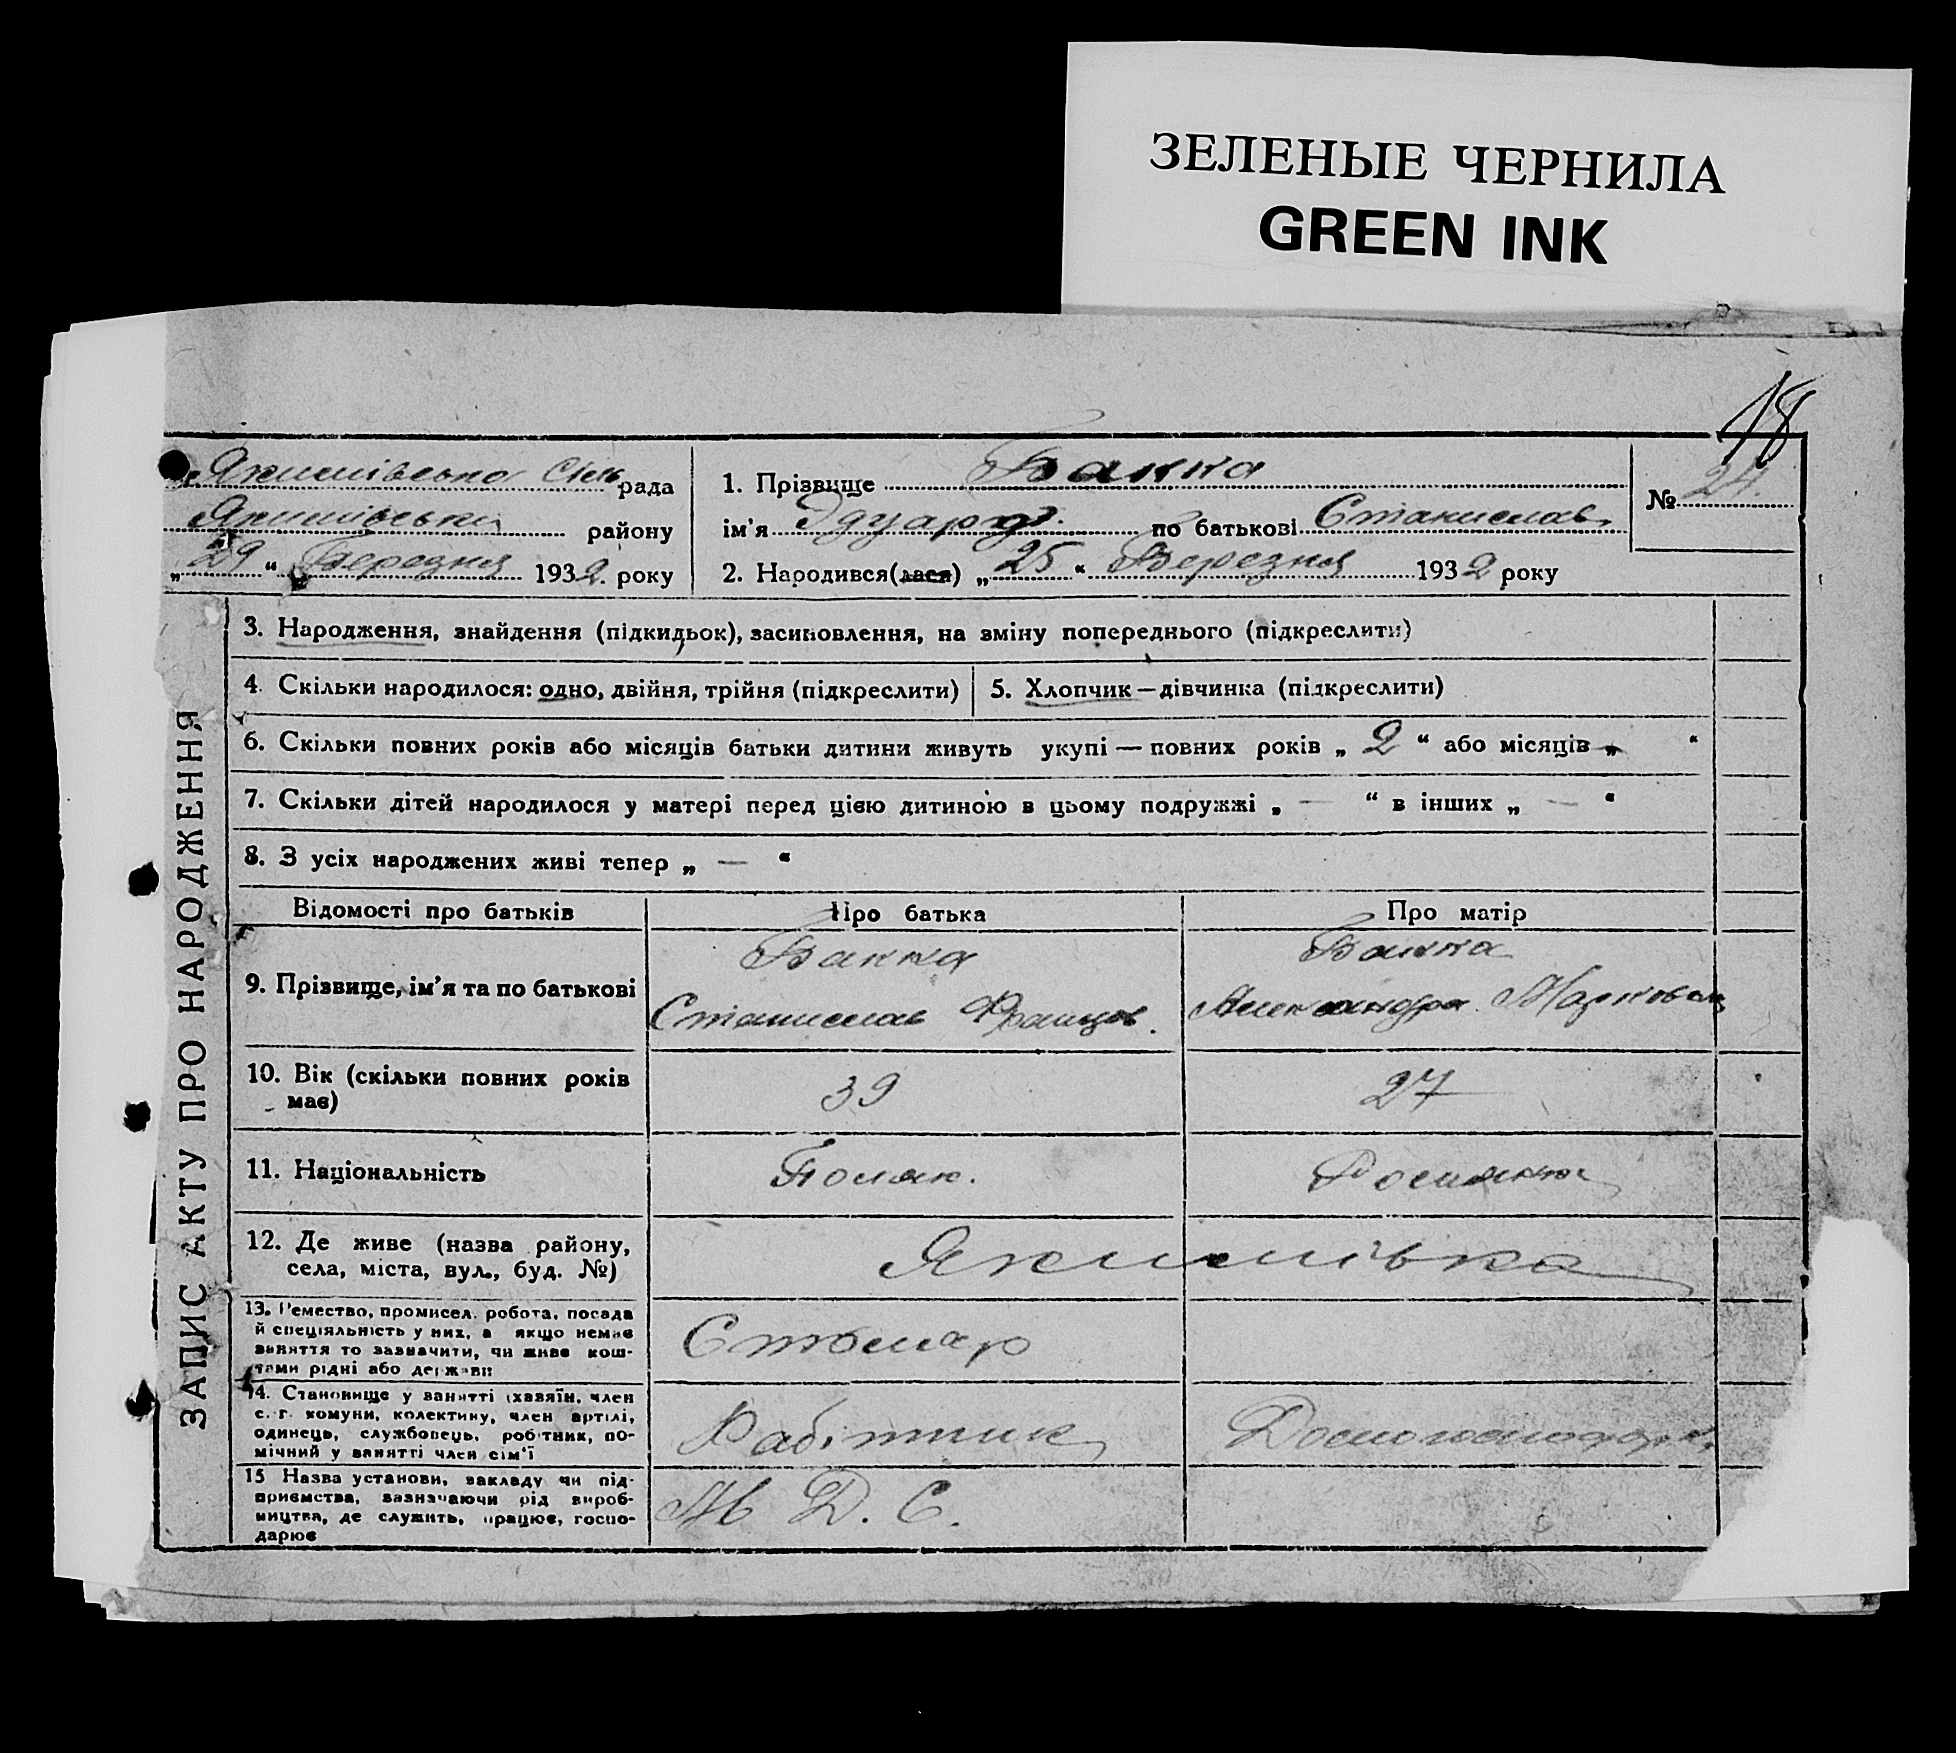 ЗЕЛЕНЫЕ ЧЕРНИЛА
GREEN INK
18
Якимівська Сіль рада
Якимівськ району
„29“ Березня 1932 року
1. Прізвище Банка
ім'я Эдуард по батькові Станислав.
№ 24.
2. Народився(лася) „25“ Березня 1932 року
ЗАПИС АКТУ ПРО НАРОДЖЕННЯ
3. Народження, знайдення (підкидьок), засиновлення, на зміну попереднього (підкреслити)
4. Скільки народилося: одно, двійня, трійня (підкреслити)
5. Хлопчик — дівчинка (підкреслити)
6. Скільки повних років або місяців батьки дитини живуть укупі — повних років „ 2 “ або місяців „ “
7. Скільки дітей народилося у матері перед цією дитиною в цьому подружжі „ — “ в інших „ — “
8. З усіх народжених живі тепер „ — “
Відомості про батьків
Про батька
Про матір
9. Прізвище, ім'я та по батькові
Банка
Станислав Францов.
Банка
Александра Марковна
10. Вік (скільки повних років
має)
39
27
11. Національність
Поляк.
Росиянка
12. Де живе (назва району,
села, міста, вул., буд. №)
Якимівка
13. Ремество, промисел, робота, посада
й спеціяльність у них, а якщо немає
заняття то зазначити, чи живе кош-
тами рідні або держави
Столяр
14. Становище у занятті (хазяїн, член
с.-г. комуни, колективу, член артілі,
одинець, службовець, робітник, по-
мічний у занятті член сім'ї
Рабітник
Домогосподарк.
15 Назва установи, закладу чи під-
приємства, зазначаючи рід вироб-
ництва, де служить, працює, госпо-
дарює
Д. С.